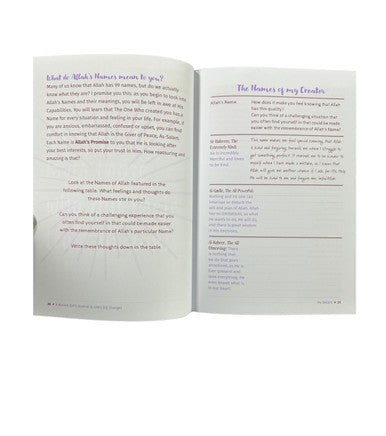 What do Allah's Names mean to you?
Many of us know that Allah has 99 names, but do we actually
know what they are? I promise you this: as you begin to look into
Allah's Names and their meanings, you will be left in awe at His
Capabilities. You will learn that The One Who created you has a
Name for every situation and feeling in your life. For example, if
you are anxious, embarrassed, confused or upset, you can find
comfort in knowing that Allah is the Giver of Peace, As-Salam.
Each Name is Allah's Promise to you that He is looking after
your best interests, so put your trust in Him. How reassuring and
amazing is that?
Look at the Names of Allah featured in the
following table. What feelings and thoughts do
these Names stir in you?
Can you think of a challenging experience that you
often find yourself in that could be made easier
with the remembrance of Allah's particular Name?
Write these thoughts down in the table.
The Names of my Creator
Allah's Name
How does it make you feel knowing that Allah
has this quality?
Can you think of a challenging situation that
you often find yourself in that could be made
easier with the remembrance of Allah's Name?
Ar-Raheem, The
Extremely Kind:
Merciful and loves
to be kind.
This name makes me feel special knowing that Allah
is kind and forgiving, because when I struggle to
get something perfect, it reminds me to be kinder to
myself when I make mistakes, and also that
Allah will give me another chance if I ask for it
He will be kind to me and forgive me, inshaAllah.
Al-Qadir, The All-Powerful:
Nothing and no one can
interrupt or disturb the
will and plan of Allah. Allah
has no limitations, so what
He wants to do, He will do,
and there is great wisdom
in His decisions.
Al-Khabeer, The All
Knowing: There
is nothing that
He do
situations, as He is
Ever-present and
He
even knows what is
in our heart.